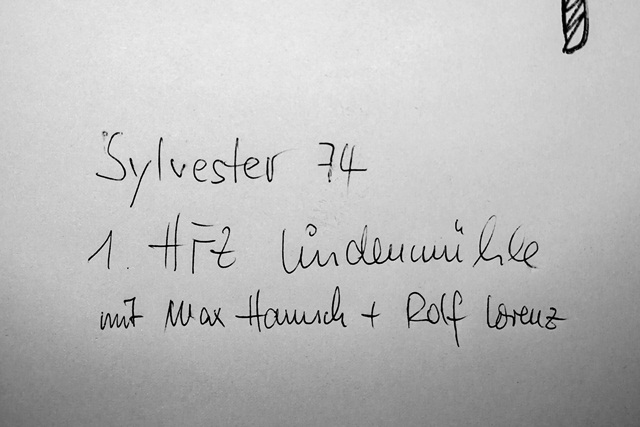 Sylvester 74
1. HFZ Lindenmühle
mit Max Hamsch + Rolf Lorenz